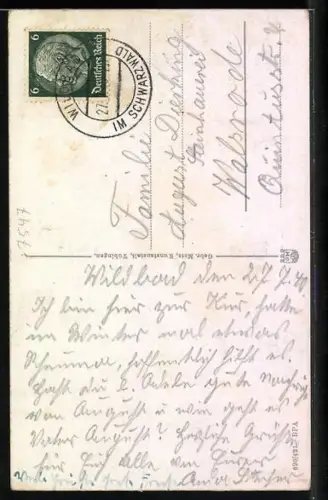 6
Deutsches Reich
WIL
IM SCHWARZWALD
27.
Familie
August
Walsrode
Quintusstr.
7547
Gebr. Metz, Kunstanstalt, Tübingen.
Wildbad den 27.7.40
Ich bin hier zur Kur, hatte
im Winter mal etwas
Rheuma, hoffentlich hilft es.
Hast du l. Adele gute Nachricht
von August u wie geht es
Vater August? Herzliche Grüße
für Euch alle von Eurer
Anna